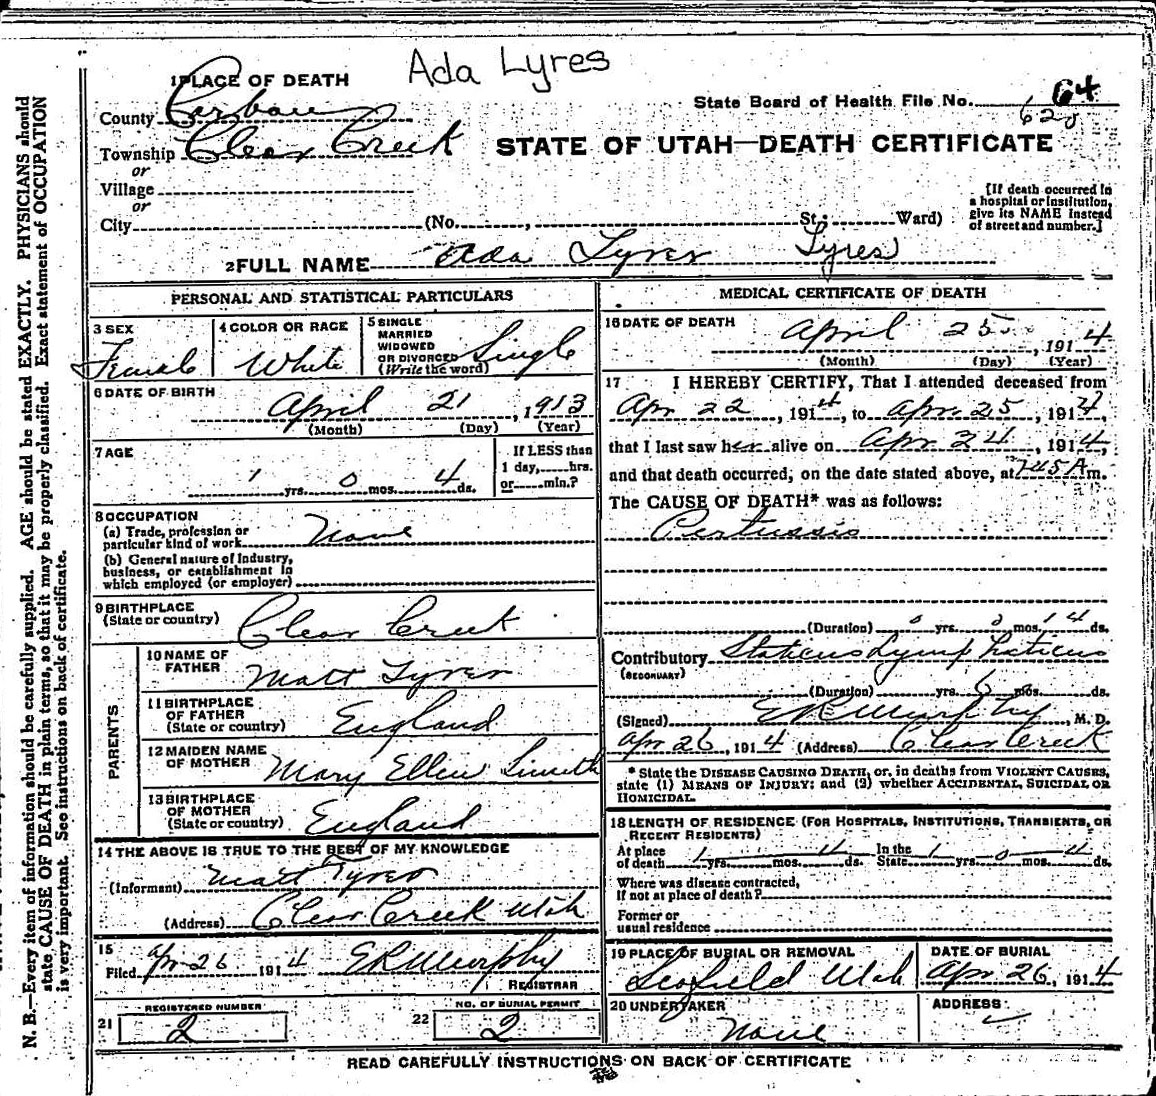 Ada Lyres
1 PLACE OF DEATH
State Board of Health File No. 64
620
County Carbon
Township Clear Creek
STATE OF UTAH—DEATH CERTIFICATE
or
Village
or
City (No. , St; Ward)
[If death occurred in a hospital or institution, give its NAME instead of street and number.]
2 FULL NAME Ada Lyres Lyres
PERSONAL AND STATISTICAL PARTICULARS
3 SEX Female
4 COLOR OR RACE White
5 SINGLE MARRIED WIDOWED OR DIVORCED (Write the word) Single
6 DATE OF BIRTH April 21, 1913
(Month) (Day) (Year)
7 AGE 1 yrs. 0 mos. 4 ds.
If LESS than 1 day, hrs. or min.?
8 OCCUPATION
(a) Trade, profession or particular kind of work None
(b) General nature of Industry, business, or establishment in which employed (or employer)
9 BIRTHPLACE (State or country) Clear Creek
PARENTS
10 NAME OF FATHER Matt
11 BIRTHPLACE OF FATHER (State or country) England
12 MAIDEN NAME OF MOTHER Mary Ellen
13 BIRTHPLACE OF MOTHER (State or country) England
14 THE ABOVE IS TRUE TO THE BEST OF MY KNOWLEDGE
(Informant) Matt
(Address) Clear Creek Utah
15 Filed Apr 26 1914 ERMurphy
REGISTRAR
21 REGISTERED NUMBER 2
22 NO. OF BURIAL PERMIT 2
MEDICAL CERTIFICATE OF DEATH
16 DATE OF DEATH April 25, 1914
(Month) (Day) (Year)
17 I HEREBY CERTIFY, That I attended deceased from
Apr 22, 1914, to Apr. 25, 1914,
that I last saw her alive on Apr 24, 1914,
and that death occurred, on the date stated above, at 745 A m.
The CAUSE OF DEATH* was as follows:
Pertussis
(Duration) 0 yrs. 0 mos. 14 ds.
Contributory Staticus Lymphaticus
(SECONDARY)
(Duration) yrs. 6 mos. ds.
(Signed) ERMurphy, M. D.
Apr 26, 1914 (Address) Clear Creek
* State the DISEASE CAUSING DEATH, or, in deaths from VIOLENT CAUSES, state (1) MEANS OF INJURY; and (2) whether ACCIDENTAL, SUICIDAL OR HOMICIDAL.
18 LENGTH OF RESIDENCE (FOR HOSPITALS, INSTITUTIONS, TRANSIENTS, OR RECENT RESIDENTS)
At place of death 1 yrs. mos. 4 ds. In the State 1 yrs. 0 mos. 4 ds.
Where was disease contracted, if not at place of death?
Former or usual residence
19 PLACE OF BURIAL OR REMOVAL Scofield Utah
DATE OF BURIAL Apr 26, 1914
20 UNDERTAKER None
ADDRESS
READ CAREFULLY INSTRUCTIONS ON BACK OF CERTIFICATE
N. B.—Every item of information should be carefully supplied. AGE should be stated EXACTLY. PHYSICIANS should
state CAUSE OF DEATH in plain terms, so that it may be properly classified. Exact statement of OCCUPATION
is very important. See instructions on back of certificate.